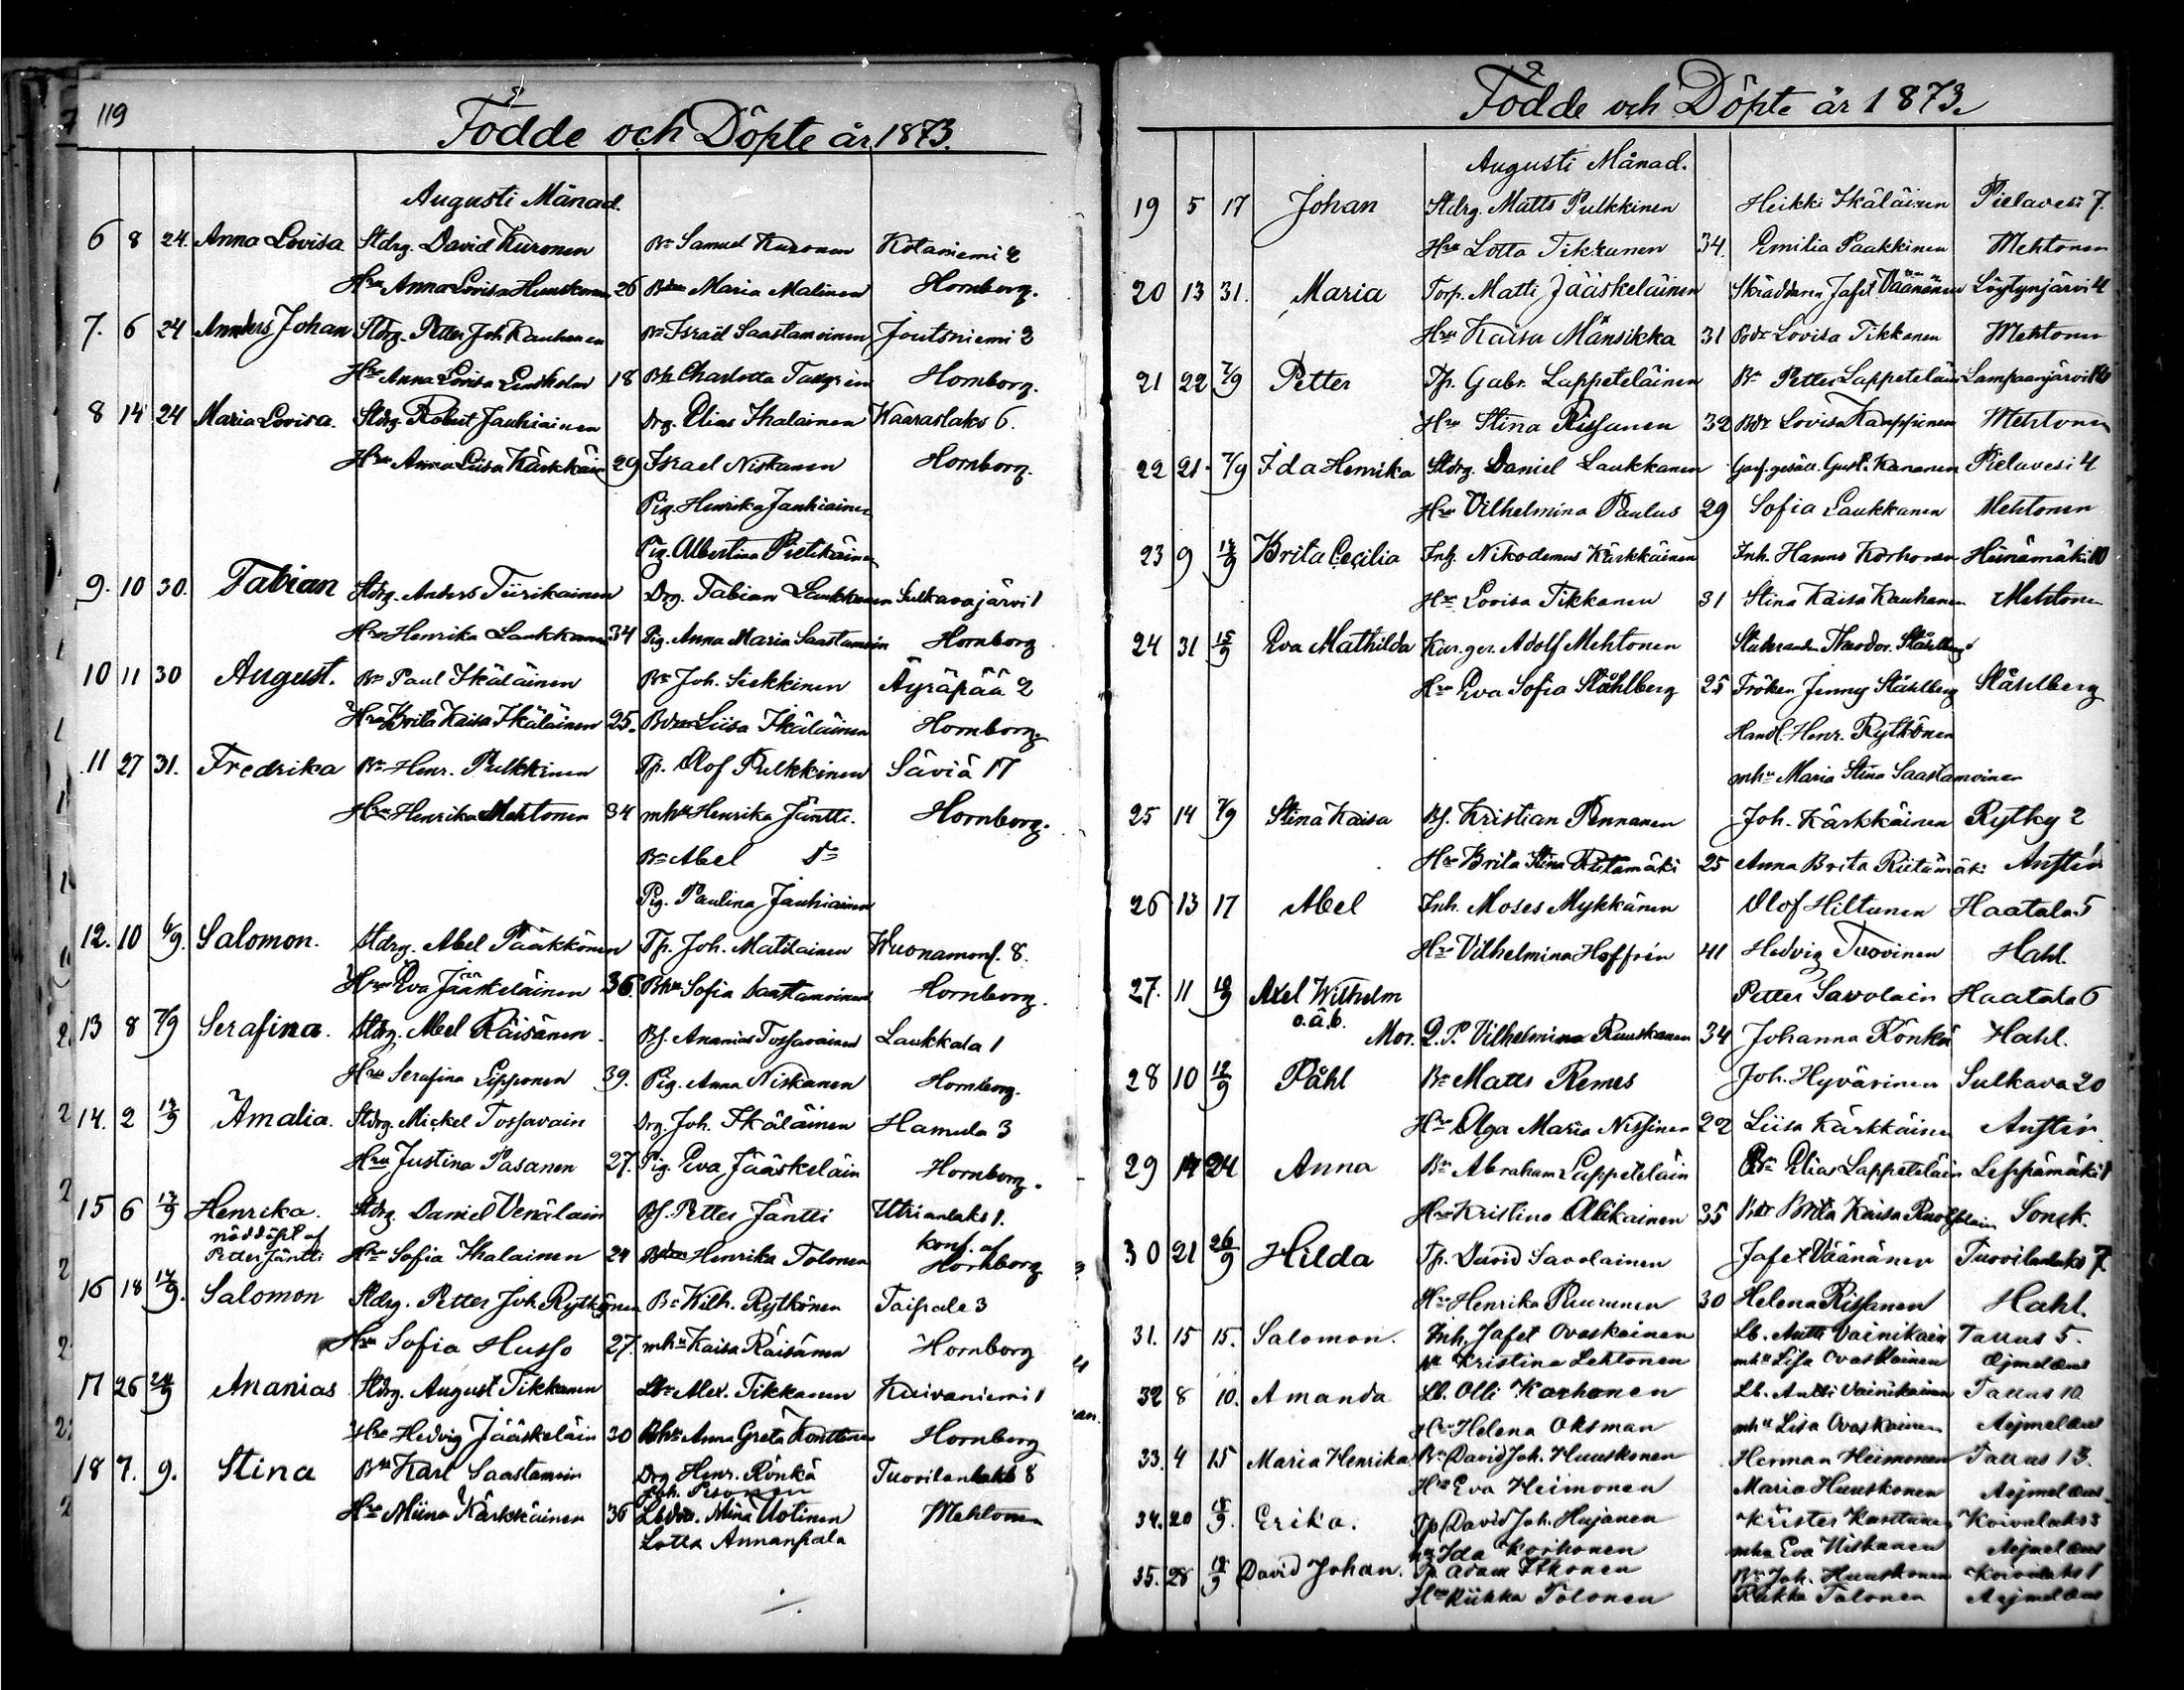 119
Födde och Döpte år 1873.
Augusti Månad.
6 8 24. Anna Lovisa Stdrg. David Kuronen Bn Samuel Kuronen Kotaniemi 2
Hru Anna Lovisa Huuskonen 26 Bdn Maria Malinen Hornborg.
7. 6 24 Annders Johan Stdrg. Petter Joh Kauhanen Bn Israel Saastamoinen Joutsniemi 2
Hru Anna Lovisa Lindholm 18 Charlotta Tallgren Hornborg.
8 14 24 Maria Lovisa. Stdrg. Robert Jauhiainen Drg. Elias Ihalainen Waaraslaks 6.
Hru Anna Liisa Kärkkäin 29 Israel Niskanen Hornborg.
Pig. Henrika Jauhiainen
Pig. Albertina Pietikäinen
9. 10 30. Fabian Stdrg. Anders Tiirikainen Drg. Fabian Laukkanen Sulkavajärvi 1
Hru Henrika Laukkanen 34 Pig. Anna Maria Saastamoin Hornborg
10 11 30 August. Bn Paul Ikäläinen Bn Joh. Siekkinen Äyräpää 2
Hru Brita Kaisa Ikäläinen 25. Bdn Liisa Ikäläinen Hornborg.
11 27 31. Fredrika Bn Henr. Pulkkinen Tp. Olof Pulkkinen Säviä 17
Hru Henrika Mehtonen 34 mhu Henrika Jäntti. Hornborg.
Bn Abel Do
Pig. Paulina Jauhiainen
12. 10 6/9. Salomon. Stdrg. Abel Pääkkönen Tp. Joh. Matilainen Wuonamonl. 8.
Hru Eva Jääskeläinen 36. Bhu Sofia Saastamoinen Hornborg.
13 8 7/9 Serafina. Stdrg. Abel Räisänen Bf. Ananias Tossavainen Laukkala 1
Hru Serafina Lipponen 39. Pig. Anna Niskanen Hornborg.
14. 2 13/9 Amalia. Stdrg. Mickel Tossavain Drg. Joh. Ikäläinen Hamula 3
Hru Justina Pasanen 27. Pig. Eva Jääskeläin Hornborg.
15 6 13/9 Henrika. Stdrg. Daniel Venäläin Bf. Petter Jäntti Utrianlaks 1.
nöddöpt af
Petter Jäntti Hru Sofia Ihalainen 24 Bdn Henrika Tolonen konf. af Hornborg
16 18 14/9. Salomon Stdrg. Petter Joh Rytkönen Bn Wilh. Rytkönen Taipale 3
Hru Sofia Husso 27. mhu Kaisa Räisänen Hornborg
17 26 24/9 Ananias Stdrg. August Tikkanen Alex. Tikkanen Kuivaniemi 1
Hru Hedvig Jääskeläin 30 Bhu Anna Greta Konttinen Hornborg
18 7. 9. Stina Bn Karl Saastamoin Drg Henr. Rönkä Tuovilanlaks 8
Joh. Pesonen
Hru Miina Kärkkäinen 36 Lbdr. Mina Uotinen Mehtonen
Lotta Annanpala
Födde och Döpte år 1873.
Augusti Månad.
19 5 17 Johan Stdrg. Matts Pulkkinen Heikki Ikäläinen Pielavesi 7.
Hru Lotta Tikkanen 34. Emilia Paakkinen Mehtonen
20 13 31. Maria Torp. Matti Jääskeläinen Skräddaren Jafet Väänänen Löytynjärvi 4
Hru Kaisa Mansikka 31 Bdr Lovisa Tikkanen Mehtonen
21 22 7/9 Petter Tp. Gabr. Lappeteläinen Bn Petter Lappeteläin Lampaanjärvi
Hru Stina Rissanen 32 Bdr Lovisa Kauppinen Mehtonen
22 21. 7/9 Ida Henrika Stdrg. Daniel Laukkanen Garf. gesäll. Gust. Kananen Pielavesi 4
Hru Vilhelmina Paulus 29 Sofia Laukkanen Mehtonen
23 9 14/9 Brita Cecilia Inh. Nikodemus Kärkkäinen Inh. Hannu Korhonen Heinämäki 10
Hru Lovisa Tikkanen 31 Stina Kaisa Kauhanen Mehtonen
24 31 15/9 Eva Mathilda Adolf Mehtonen Studeranden Theodor. Ståhlberg
Hru Eva Sofia Ståhlberg 25 Fröken Jenny Ståhlberg Ståhlberg
Handl. Henr. Rytkönen
mhu Maria Stina Saastamoinen
25 14 7/9 Stina Kaisa Bf. Kristian Pennanen Joh. Kärkkäinen Rytky 2
Hru Brita Stina Riitamäki 25 Anna Brita Riitamäki Anstén
26 13 17 Abel Inh. Moses Mykkänen Olof Hiltunen Haatala 5
Hru Vilhelmina Hoffrén 41 Hedvig Tuovinen Hahl.
27. 11 18/9 Axel Wilhelm Petter Savolain Haatala 6
o.ä.b.
Mor. Q. P. Vilhelmina Ruuskanen 34 Johanna Rönkä Hahl.
28 10 12/9 Påhl Bn Matts Remes Joh. Hyvärinen Sulkava 20
Hru Olga Maria Nissinen 22 Liisa Kärkkäinen Anstén
29 14 24 Anna Bn Abraham Lappeteläin Bdn Elias Lappeteläin Leppämäki 1
Hru Kristina Alikainen 35 Bdr Brita Kaisa Sonck.
30 21 26/9 Hilda Tp. David Savolainen Jafet Väänänen Tuovilanlaks 7.
Hru Henrika Puurunen 30 Helena Rissanen Hahl.
31. 15 15. Salomon. Inh. Jafet Ovaskainen Lb. Antti Vainikain Tallus 5.
hu Kristina Lehtonen mhu Lisa Ovaskainen Aejmelæus
32 8 10. Amanda Lb. Olli Korhonen Lb. Antti Vainikainen Tallus 10
Hru Helena Oksman mhu Lisa Ovaskainen Aejmelæus
33. 4 15 Maria Henrika Bn David Joh. Huuskonen Herman Heimonen Tallus 13.
Hru Eva Heimonen Maria Huuskonen Aejmelæus
34. 20 15/9. Erika. Tp David Joh. Hujanen Krister Kastunen Koivulaks 3
hu Ida Korhonen mhu Eva Niskanen Aejmelæus
35. 28 18/9 David Johan. Tp. Adam Itkonen Bn Joh. Huuskonen Koivulaks 1
Hru Riikka Tolonen Riikka Tolonen Aejmelæus